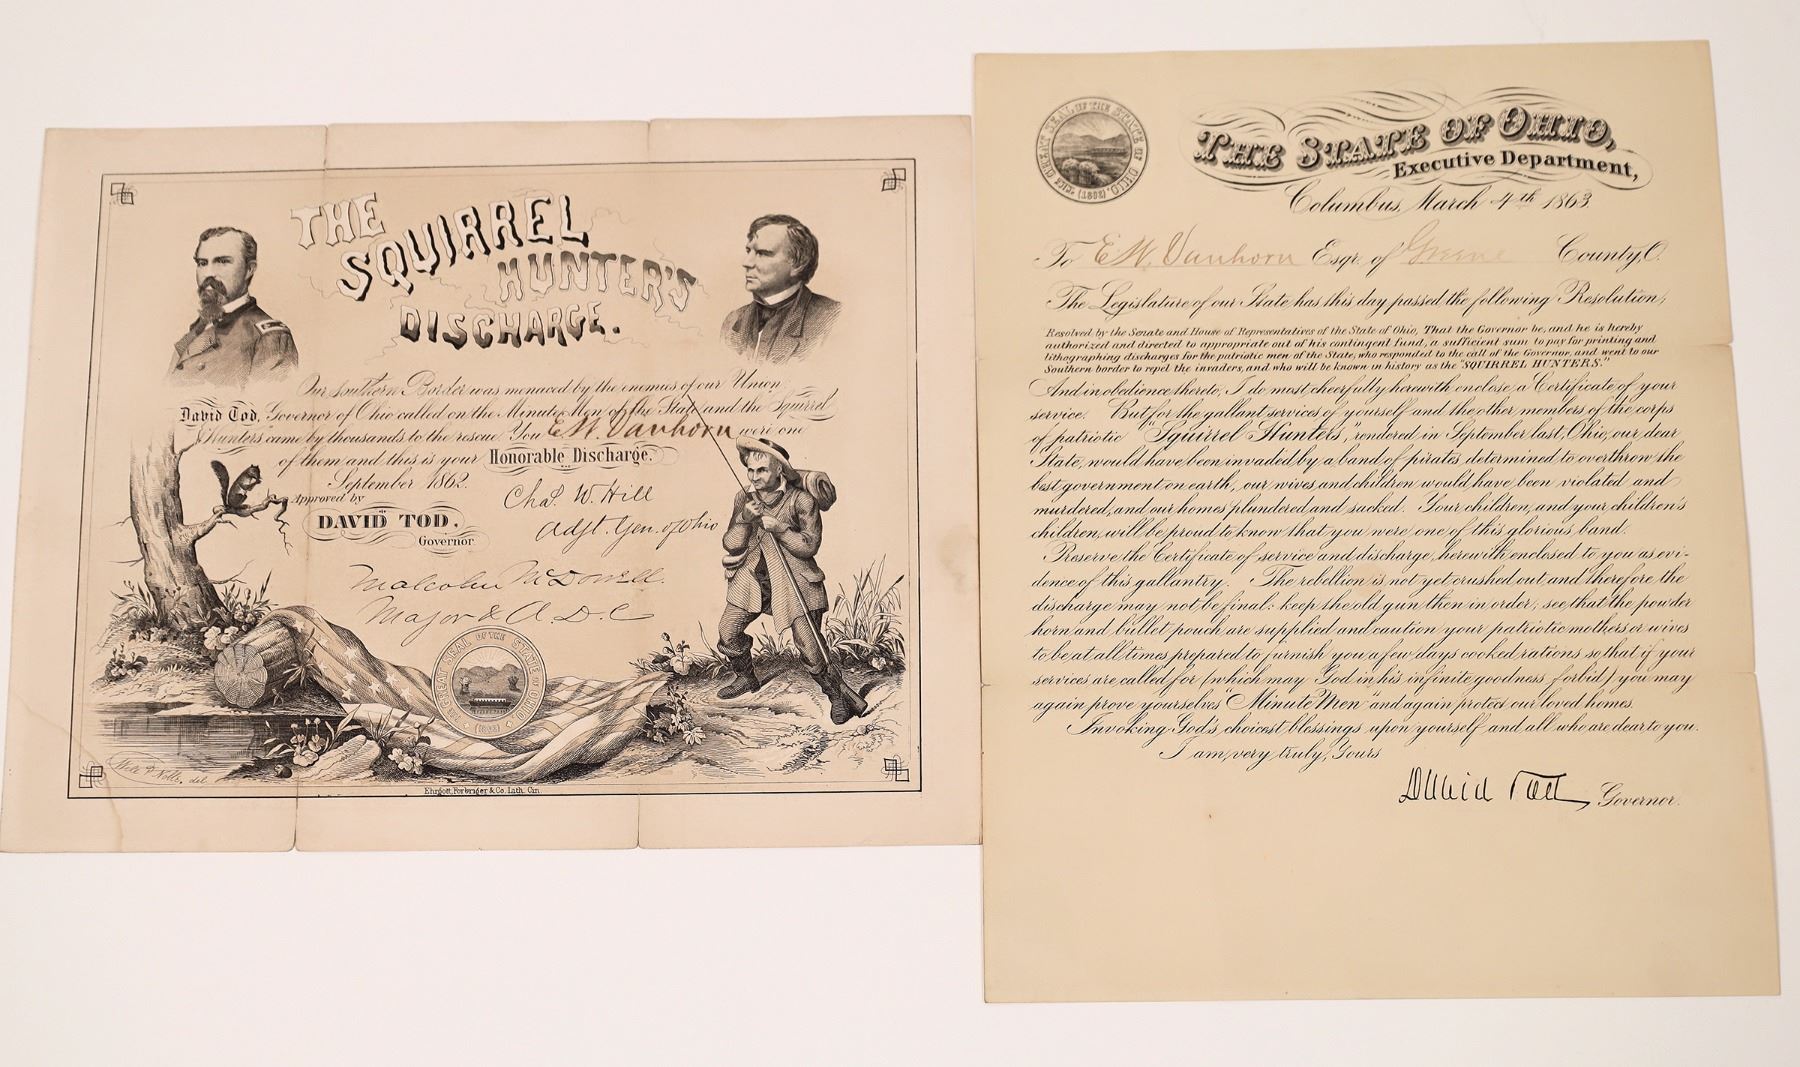 THE
SQUIRREL
HUNTER'S
DISCHARGE.
Our Southern Border was menaced by the enemies of our Union.
David Tod, Governor of Ohio called on the Minute Men of the State and the Squirrel
Hunters came by thousands to the rescue. You E W. Vanhorn were one
of them and this is your Honorable Discharge.
September 1862.
Approved by
DAVID TOD,
Governor
Chas. W. Hill
Adjt. Gen. of Ohio
Malcolm McDowell.
Major & A.D.C
THE GREAT SEAL OF THE STATE OF OHIO
del
Ehrgott, Forbriger & Co. Lith. Cin.
GREAT SEAL OF THE STATE OF OHIO.
THE STATE OF OHIO,
Executive Department,
Columbus, March 4th 1863.
To E W. Vanhorn Esqr. of Greene County, O.
The Legislature of our State has this day passed the following Resolution,
"Resolved by the Senate and House of Representatives of the State of Ohio, That the Governor be, and he is hereby
authorized and directed to appropriate out of his contingent fund, a sufficient sum to pay for printing and
lithographing discharges for the patriotic men of the State, who responded to the call of the Governor, and went to our
Southern border to repel the invaders, and who will be known in history as the "SQUIRREL HUNTERS."
And in obedience thereto, I do most cheerfully herewith enclose a Certificate of your
service. But for the gallant services of yourself and the other members of the corps
of patriotic "Squirrel Hunters", rendered in September last, Ohio, our dear
State, would have been invaded by a band of pirates determined to overthrow the
best government on earth, our wives and children would have been violated and
murdered, and our homes plundered and sacked. Your children, and your children's
children, will be proud to know that you were one of this glorious band.
Reserve the Certificate of service and discharge, herewith enclosed to you as evi-
dence of this gallantry. The rebellion is not yet crushed out, and therefore the
discharge may not be final: keep the old gun then in order, see that the powder
horn and bullet pouch are supplied and caution your patriotic mothers or wives
to be at all times prepared to furnish you a few days cooked rations so that if your
services are called for (which may God in his infinite goodness forbid) you may
again prove yourselves "Minute Men" and again protect our loved homes.
Invoking God's choicest blessings upon yourself and all who are dear to you.
I am, very truly, Yours
David Tod, Governor.